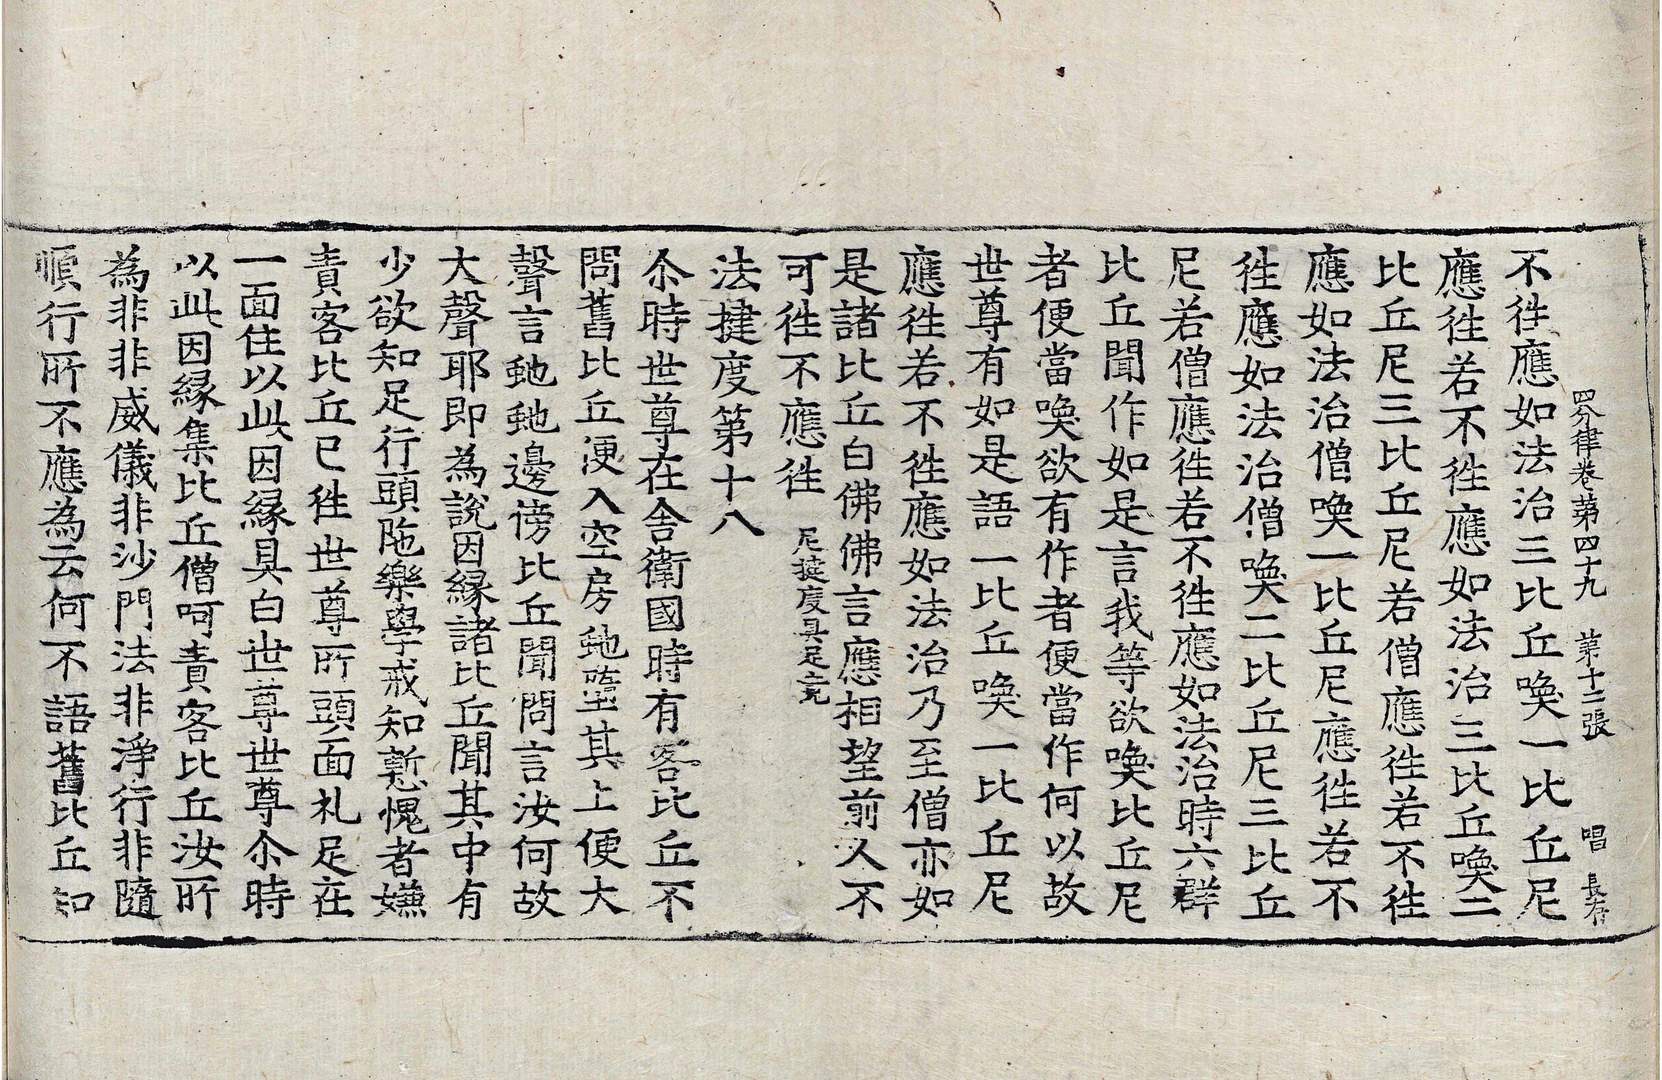 四分律卷第四十九　第十二張　唱　長存
不徃應如法治三比丘喚一比丘尼
應徃若不徃應如法治三比丘喚二
比丘尼三比丘尼若僧應徃若不徃
應如法治僧喚一比丘尼應徃若不
徃應如法治僧喚二比丘尼三比丘
尼若僧應徃若不徃應如法治時六群
比丘聞作如是言我等欲喚比丘尼
者便當喚欲有作者便當作何以故
世尊有如是語一比丘喚一比丘尼
應徃若不徃應如法治乃至僧亦如
是諸比丘白佛佛言應相望前人不
可徃不應徃　尼揵度具足竟
法揵度第十八
尒時世尊在舍衛國時有客比丘不
問舊比丘便入空房虵墮其上便大
聲言虵虵邊傍比丘聞問言汝何故
大聲耶即為說因緣諸比丘聞其中有
少欲知足行頭陁樂學戒知慙愧者嫌
責客比丘已徃世尊所頭面礼足在
一面住以此因緣具白世尊世尊尒時
以此因緣集比丘僧呵責客比丘汝所
為非非威儀非沙門法非淨行非隨
順行所不應為云何不語舊比丘知